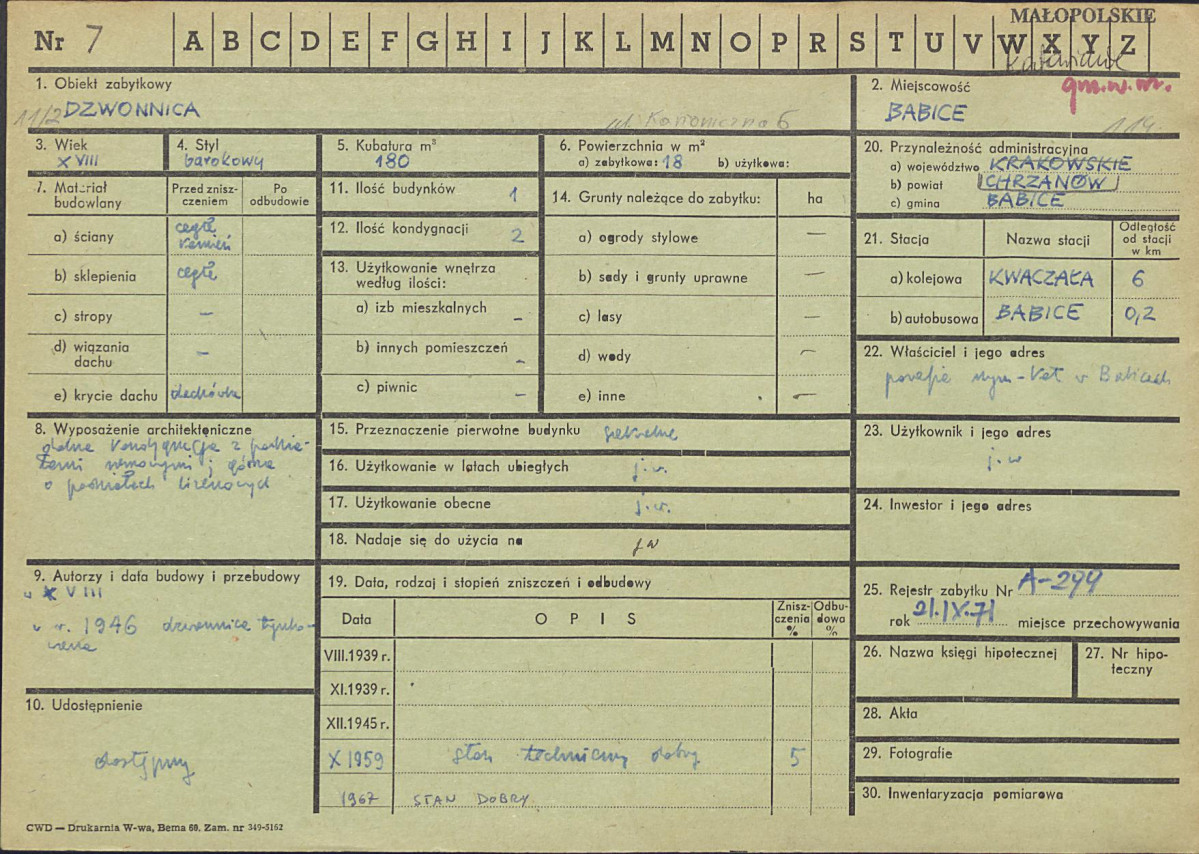 MAŁOPOLSKIE
Nr 7 A B C D E F G H I J K L M N O P R S T U V W X Y Z
gm.w.m.
1. Obiekt zabytkowy
11/2 DZWONNICA
ul. Kanoniczna 6
2. Miejscowość
BABICE
119.
3. Wiek
XVIII
4. Styl
barokowy
5. Kubatura m³
180
6. Powierzchnia w m²
a) zabytkowa: 18 b) użytkowa:
20. Przynależność administracyjna
a) województwo KRAKOWSKIE
b) powiat CHRZANÓW
c) gmina BABICE
7. Materiał budowlany
Przed zniszczeniem
Po odbudowie
a) ściany cegła kamień
b) sklepienia cegła
c) stropy –
d) wiązania dachu –
e) krycie dachu dachówka
11. Ilość budynków 1
12. Ilość kondygnacji 2
13. Użytkowanie wnętrza według ilości:
a) izb mieszkalnych –
b) innych pomieszczeń –
c) piwnic –
14. Grunty należące do zabytku: ha
a) ogrody stylowe –
b) sady i grunty uprawne –
c) lasy –
d) wody –
e) inne –
21. Stacja
Nazwa stacji
Odległość od stacji w km
a) kolejowa KWACZAŁA 6
b) autobusowa BABICE 0,2
22. Właściciel i jego adres
parafia rzym-kat w Babicach
8. Wyposażenie architektoniczne
dolna kondygnacja z
górna
o lizenowych
15. Przeznaczenie pierwotne budynku sakralne
16. Użytkowanie w latach ubiegłych j.w.
17. Użytkowanie obecne j.w.
18. Nadaje się do użycia na jw
23. Użytkownik i jego adres
j.w
24. Inwestor i jego adres
9. Autorzy i data budowy i przebudowy
w XVIII
w r. 1946 dzwonnica tynkowana
19. Data, rodzaj i stopień zniszczeń i odbudowy
Data OPIS Zniszczenia % Odbudowa %
VIII.1939 r.
XI.1939 r.
XII.1945 r.
X 1959 stan techniczny dobry 5
1967 STAN DOBRY
25. Rejestr zabytku Nr A-299
rok 21.IX.71 miejsce przechowywania
26. Nazwa księgi hipotecznej
27. Nr hipoteczny
10. Udostępnienie
dostępny
28. Akta
29. Fotografie
30. Inwentaryzacja pomiarowa
CWD — Drukarnia W-wa, Bema 60. Zam. nr 349-5162